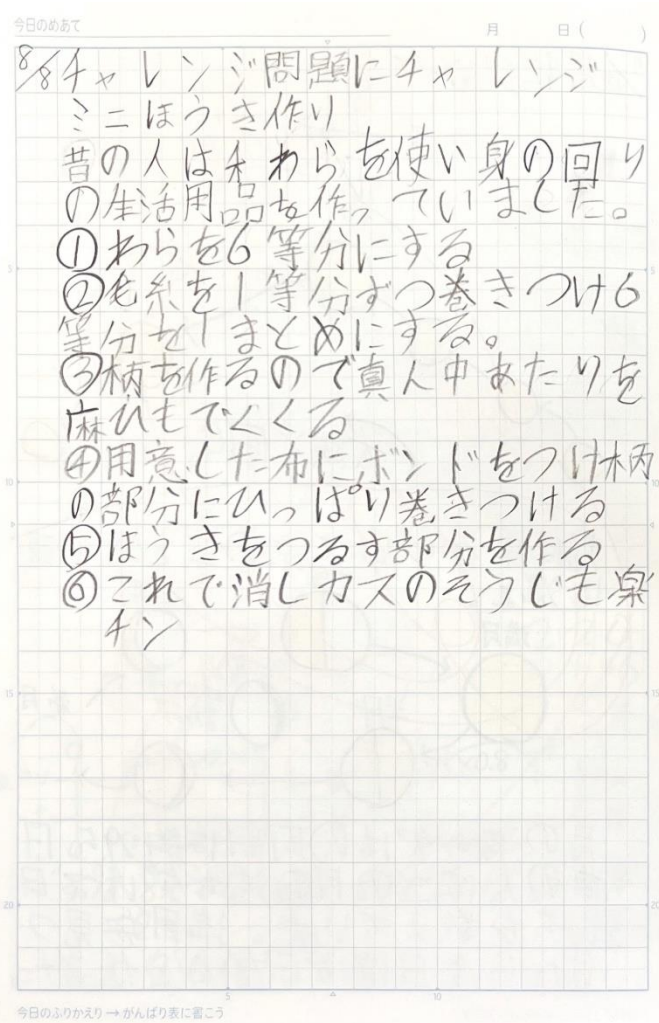 今日のめあて
月 日( )
8/8チャレンジ問題にチャレンジ
ミニほうき作り
昔の人は わらを使い身の回り
の生活用品を作っていました。
①わらを6等分にする
②毛糸を1等分ずつ巻きつけ6
等分を1まとめにする。
③柄を作るので真ん中あたりを
麻ひもでくくる
④用意した布にボンドをつけ柄
の部分にひっぱり巻きつける
⑤ほうきをつるす部分を作る
⑥これで消しカスのそうじも楽
チン
5
10
15
20
5
10
今日のふりかえり→がんばり表に書こう